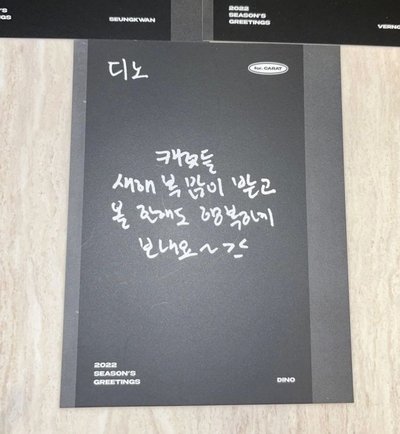 N'S
TINGS
SEUNGKWAN
2022
SEASON'S
GREETINGS
VERNO
디노
for. CARAT
캐럿들
새해 복 많이 받고
올 한해도 행복하게
보내요~
2022
SEASON'S
GREETINGS
DINO